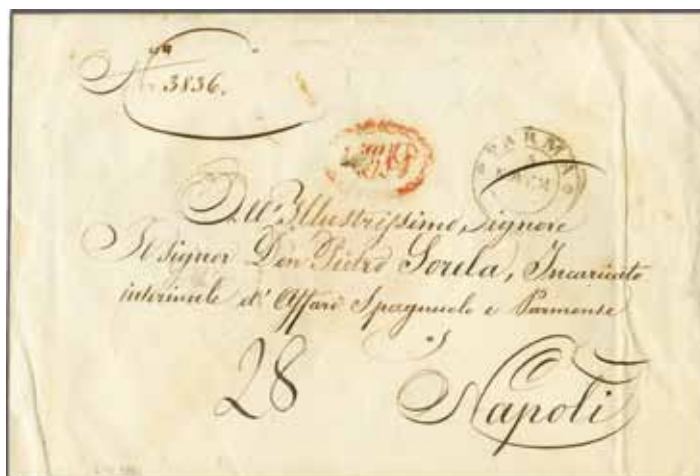 N.° 3836.
PARMA
All'Illustrissimo, Signore
Il Signor Don Pietro Sorela, Incaricato
interinale d'Affari Spagnuolo e Parmense
Napoli
28